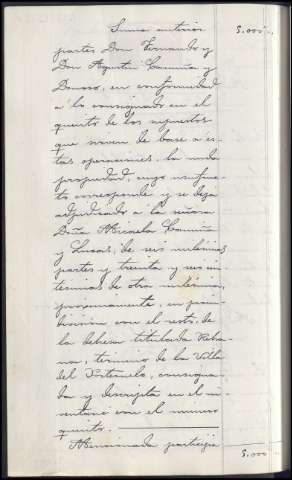 Suma anterior 5.000
partes Don Fernando y
Don Agustin y
Donoso, en conformidad
a lo consignado en el
quinto de los supuestos
que sirven de base a es-
tas operaciones, la nuda
propiedad, cuyo usufruc-
to corresponde y se deja
adjudicado a la señora
Doña Micaela
y Lucas, de seis milésimas
partes y treinta y seis cen-
tesimas de otra milésima,
proximamente, en proin-
división con el resto, de
la dehesa titulada
termino de la Villa
del consigna-
da y descripta en el in-
ventario con el numero
quinto.
Mencionada participa- 5.000